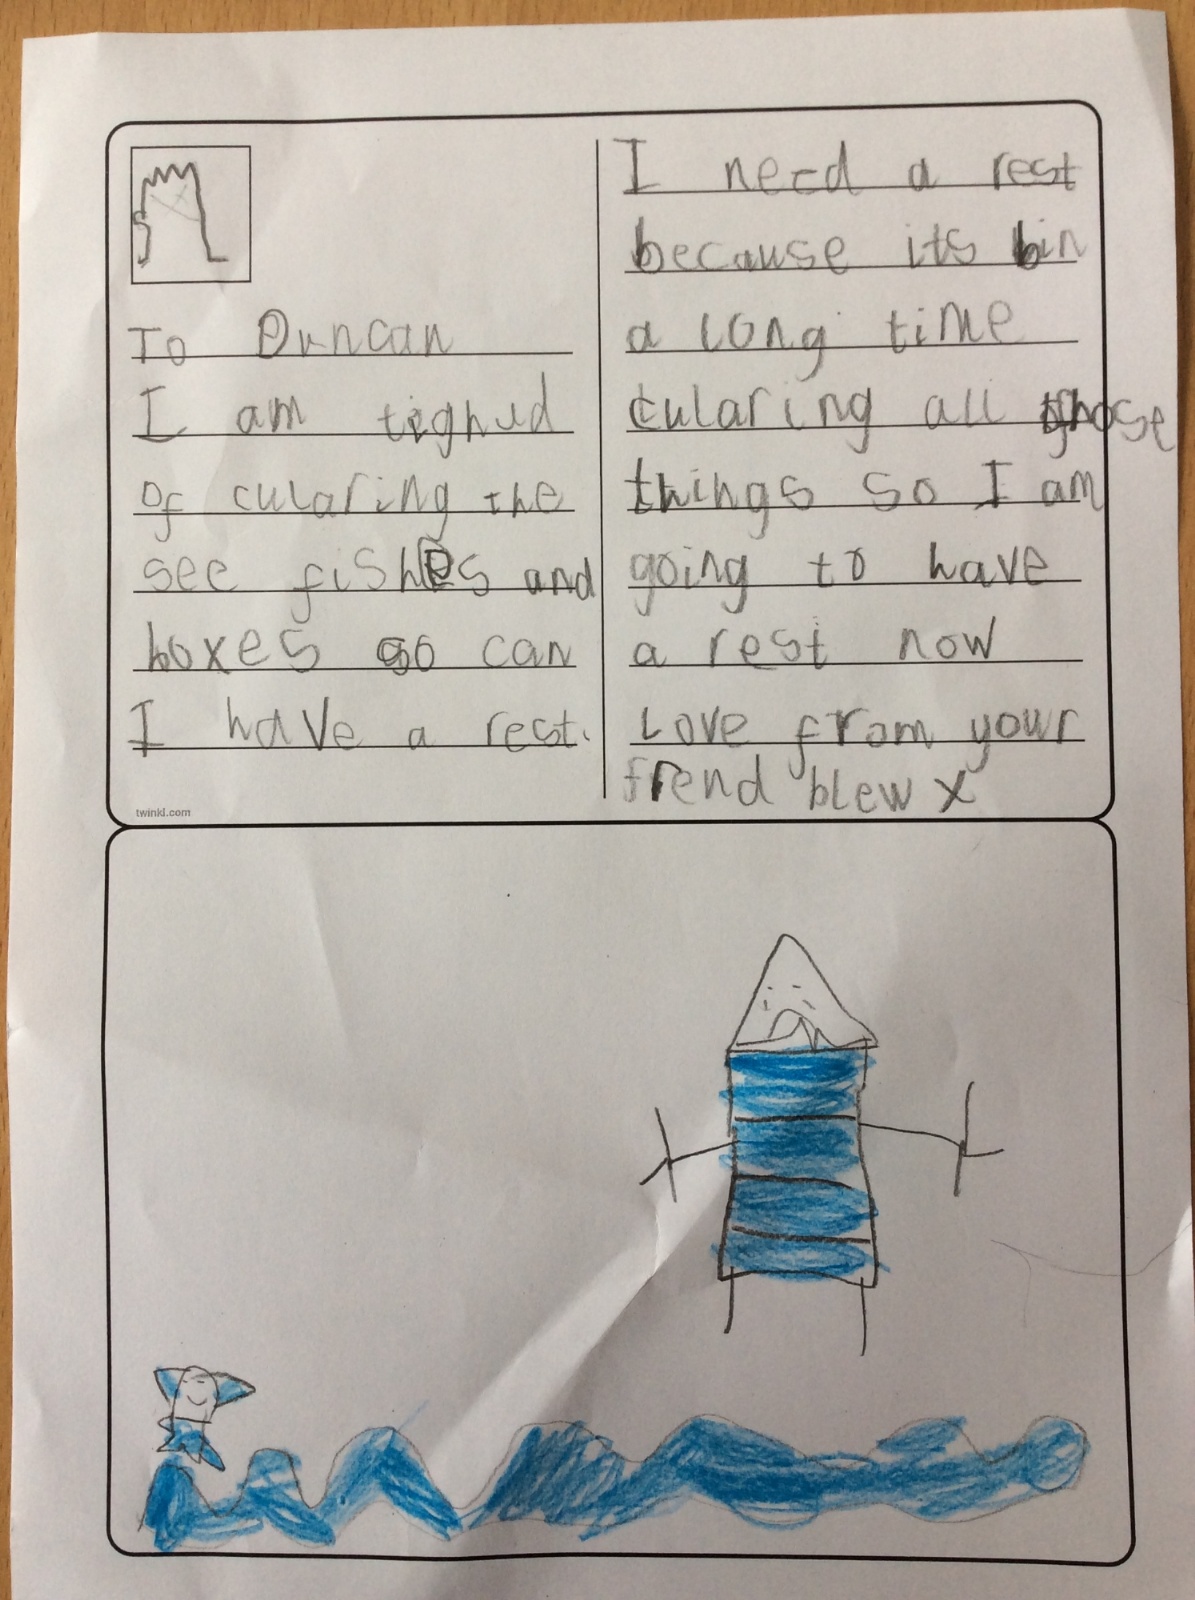 To Duncan
I am tighud
of cularing the
see fishes and
boxes so can
I have a rest.
twinkl.com
I need a rest
because its bin
a long time
cularing all those
things so I am
going to have
a rest now
Love from your
frend blew x